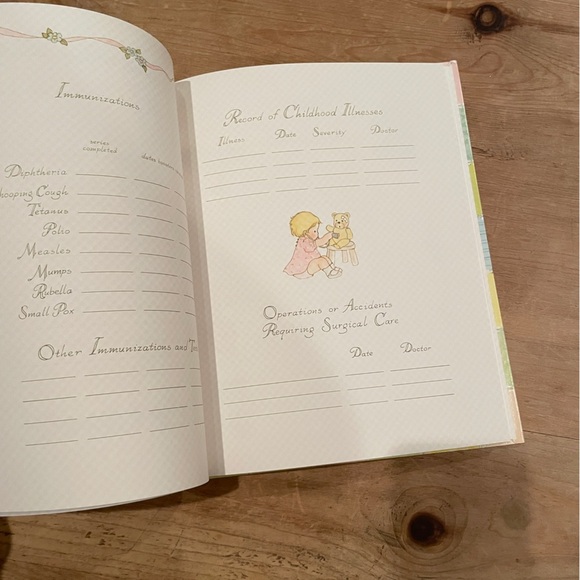 Immunizations
series
completed
dates
Diphtheria
Cough
Tetanus
Polio
Measles
Mumps
Rubella
Small Pox
Other Immunizations and
Record of Childhood Illnesses
Illness Date Severity Doctor
Operations or Accidents
Requiring Surgical Care
Date Doctor